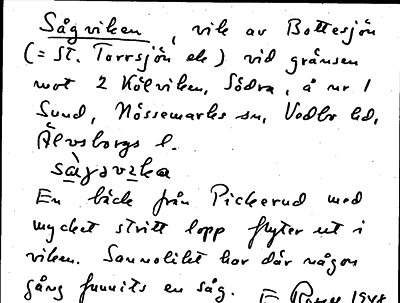 Sågviken, vik av Bottesjön
(= St. Torrsjön ek) vid gränsen
mot 2 Kölviken, Södra, å nr 1
Sund, Nössemarks sn, Vedbo hd,
Älvsborgs l.
sàgavika
En bäck från Pickerud med
mycket stritt lopp flyter ut i
viken. Sannolikt har där någon
gång funnits en såg. 1948